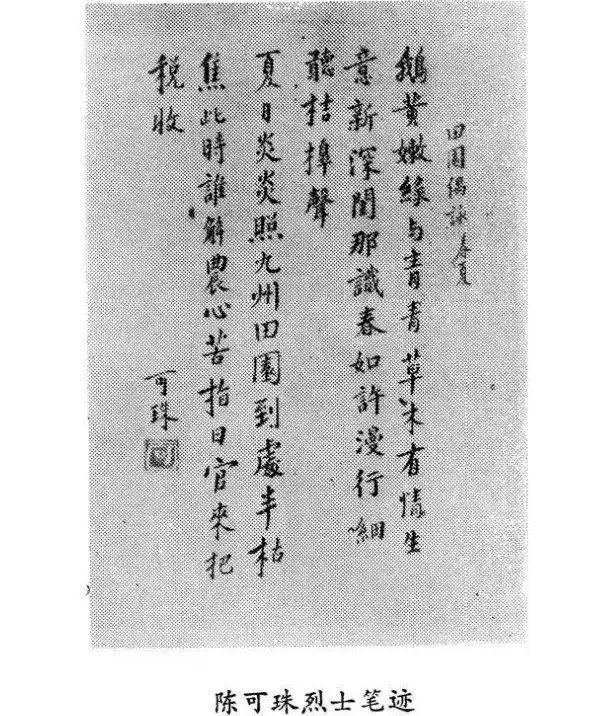 田園偶詠 春夏
鵝黄嫩綠与青青草木有情生
意新深閨那識春如許漫行細
聽桔槔聲
夏日炎炎照九州田園到處半枯
焦此時誰解農心苦指日官來把
税收
可珠
陈可珠烈士笔迹